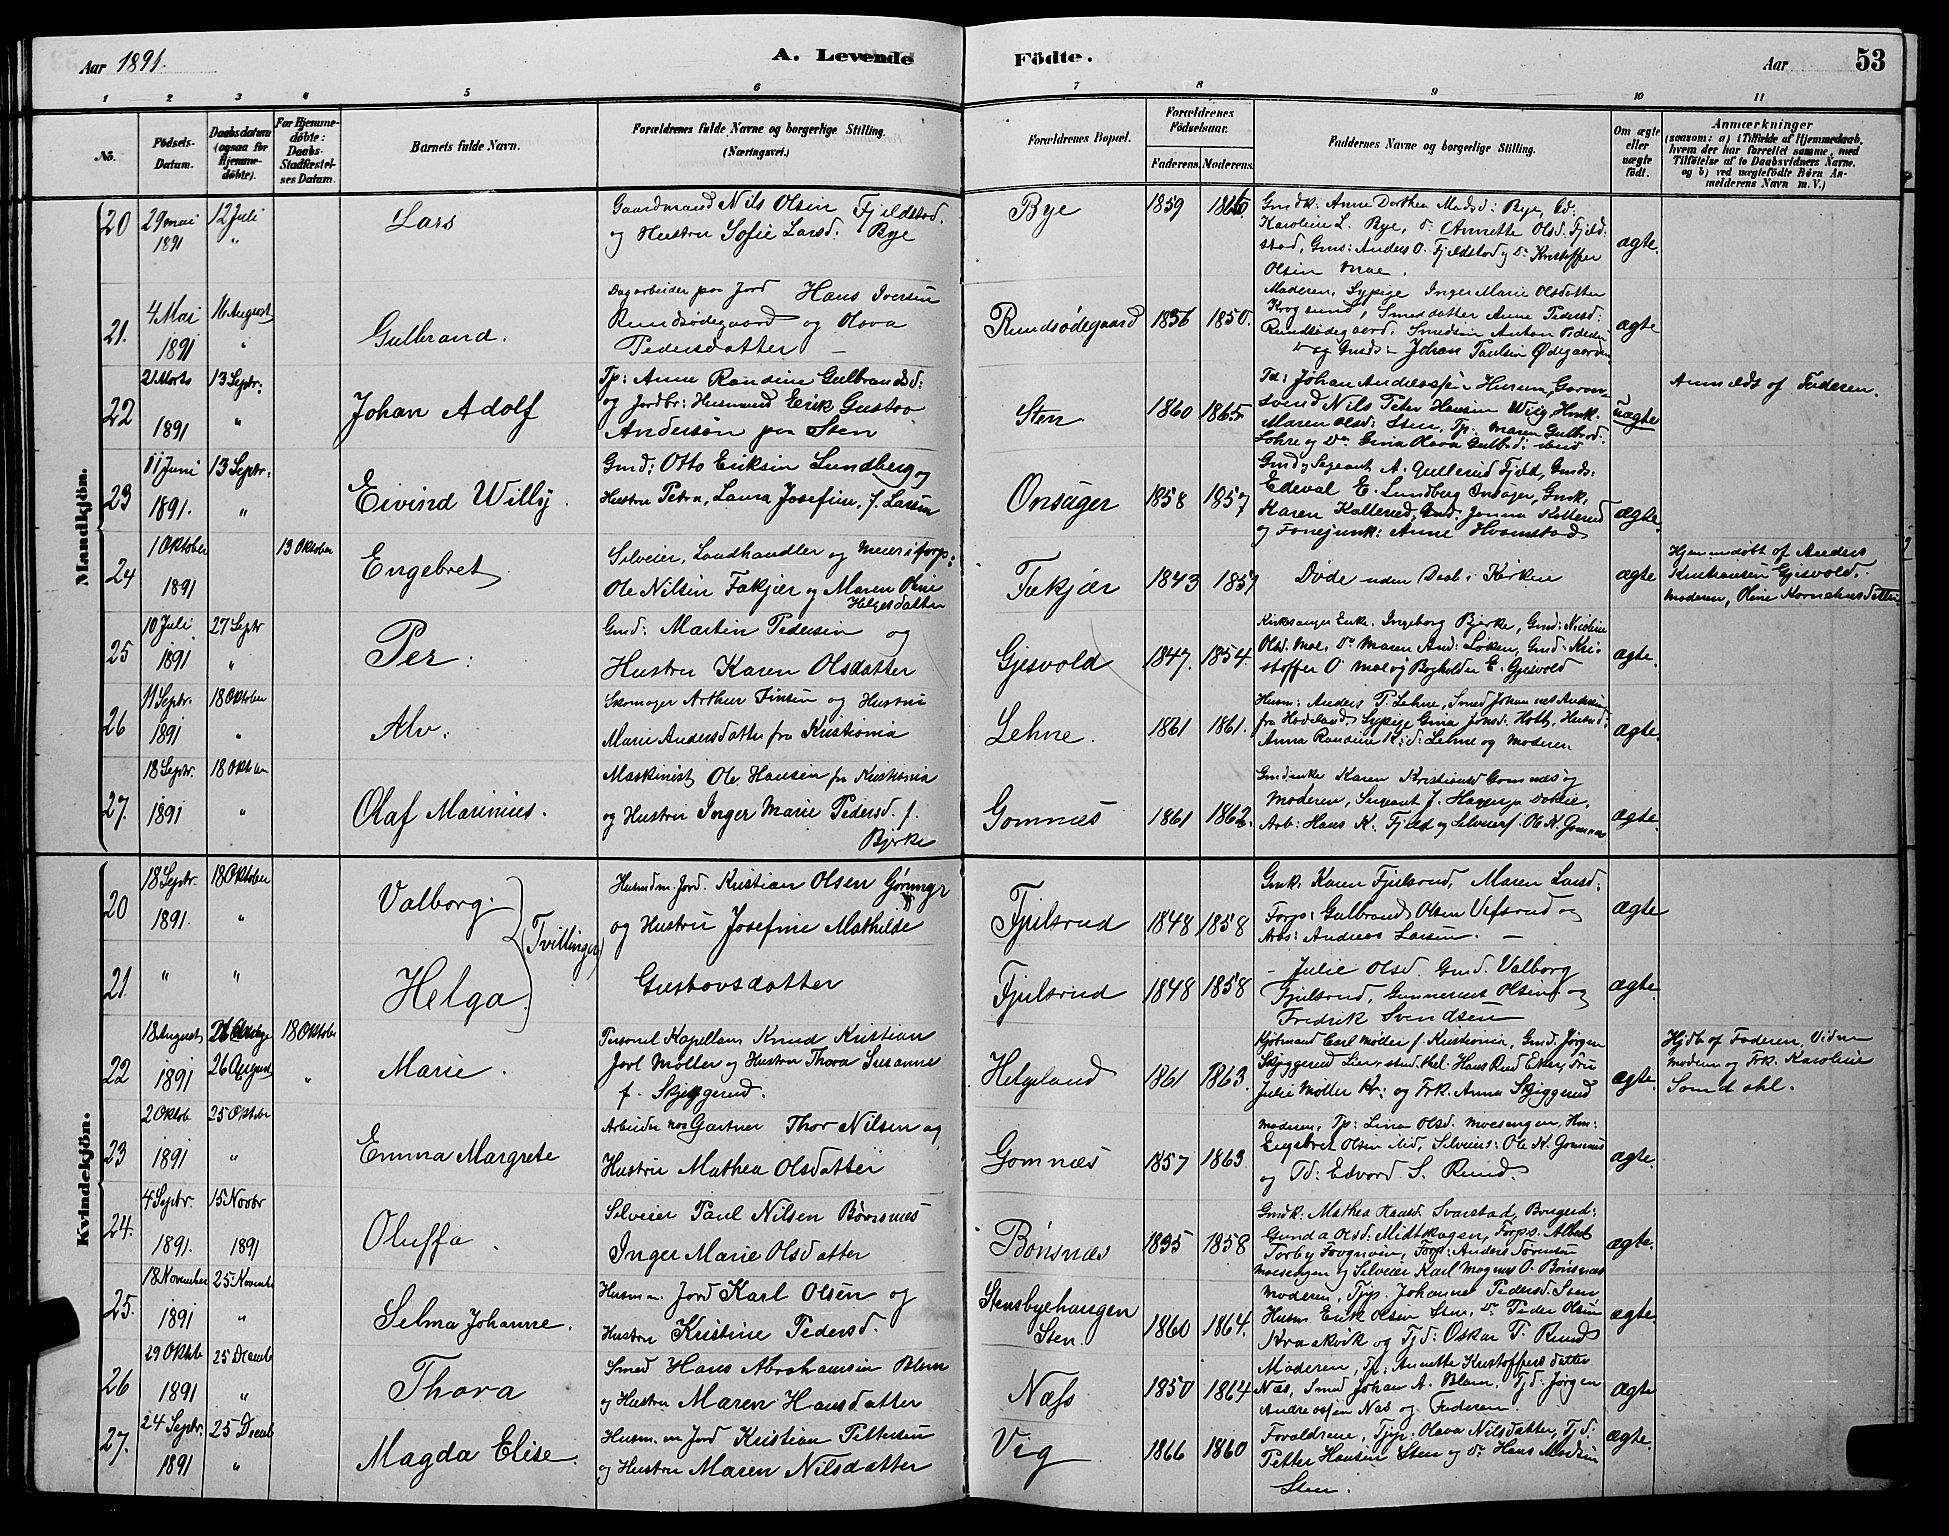 Aar 1891.
A. Levende Födte.
Aar
53
1 2 3 4 5 6 7 8 9 10 11
No.
Födsels-Datum.
Daabsdatum (ogsaa for Hjemme-döbte).
For Hjemme-döbte: Daabs-Stadfæstel-ses Datum.
Barnets fulde Navn.
Forældrenes fulde Navne og borgerlige Stilling.
(Næringsvei.)
Forældrenes Bopæl.
Forældrenes Födselsaar.
Faderens. Moderens.
Faddernes Navne og borgerlige Stilling.
Om ægte eller uægte födt.
Anmærkninger
(saasom: a) i Tilfælde af Hjemmedaab, hvem der har forrettet samme, med Tilföielse af to Daabsvidners Navne. og b) ved uægtefödte Börn Anmelderens Navn m. V.)
Mandkjön.
20 29 mai 1891 12 Juli " Lars
Gaardmand Nils Olsen Fjeldstad
og Hustru Sofie Larsd: Bye
Bye 1859
Gmdk: Anne Dorthea Madsd: Bye,
Karoline L. Bye, Annette Olsd. Fjeld:
stad, Gms: Anders O. Fjeldstad og Do Kristoffer
Olsen Moe.
ægte.
21. 4 Mai 1891 16 August " Gulbrand.
Dagarbeider paa Jord Hans Iversen
Rundsødegaard og Olava
Pedersdatter —
Rundsødegaard 1856 1850.
Moderen, Sypige Inger Marie Olsdatter
Krogsund, Smeddatter Anne Pedersd:
Rundsødegaard. Smedsøn Anton Pedersen
Do og Gmds: Johan Paulsen Ødegaarden
ægte
22 21 Marts 1891 13 Septr: " Johan Adolf
Tp: Anne Randine Gulbrandsd:
og Jordbr: Husmand Erik Gustav
Anderson paa Sten
Sten 1860 1865
Td: Johan Andreassen Hurum, Garver-
svend Nils Peter Hansen Wiig, Hmk.
Maren Olsd: Sten, Tp. Maren Gulbrd:
Lohre og Do Gina Olava Gulbd:
uægte
Anmeldt af Faderen.
23 11 Juni 1891. 13 Septr: " Eivind Willy.
Gmd: Otto Eriksen Lundberg og
Hustru Petra, Laura Josefine, f. Larsen
Onsager 1858 1857
Gmd og Sergeant A. Gullerud Fjeld, Gmds:
Edeval E. Lundberg Onsager, Gmk.
Karen Kollerud, Gmd. Jonna Kollerud
og Frøkjenk: Anne Hvamstad
ægte.
24 1 Oktober 1891 13 Oktober Engebret.
Selveier, Landhandler og Meieriforp:
Ole Nilsen Fækjær og Maren Oline
Helgesdatter
Fækjær 1843 1857
Døde uden Daab i Kirken
ægte
Hjemmedøbt af Anders
Knuthansen Gjesvold.
Moderen, Oline Korneliusdatter
25 10 Juli 1891 27 Septr " Per.
Gmd: Martin Pedersen og
Hustru Karen Olsdatter
Gjesvold 1847. 1854.
Kirksanger Enke. Ingeborg Bjerke, Gmd: Nicoline
Olsd. Moe, Do Maren And: Løken, Gmd. Kri-
stoffer O. Moe og Bogholder E. Gjesvold
ægte.
26 11 Septr. 1891 18 Oktober " Alv.
Skomager Arthur Jensen og Hustru
Marie Andersdatter fra Kristiania
Lehne. 1861 1861.
Husm: Anders P. Lehne, Smed Johannes Andersen
fra Hadeland, Sypige Gina Jonsd: Holt, Husmd.
Anna Randine K: d: Lehne og Moderen
ægte.
27. 18 Septr. 1891 18 Oktober " Olaf Marinius.
Maskinist Ole Hansen fra Kristiania
og Hustru Inger Marie Pedersd. f.
Bjerke
Gomnæs 1861 1862.
Gmdenke Karen Kristiansd Gomnæs og
Moderen, Sergeant J. Hagen paa Dahlie,
Arb: Hans K. Fjeld og Selveiers: Ole K. Gomnæs
ægte.
Kvindekjön.
20 18 Septr. 1891. 18 Oktober " Valborg.
(Tvillinger)
Husmdm Jord. Kristian Olsen
og Hustru Josefine Mathilde
Fjulsrud 1848 1858
Gmk: Karen Fjulsrud, Maren Larsd:
Forp: Gulbrand Olsen Vefsrud og
Arbs: Andreas Larsen. —
ægte
21. " " Helga.
Gustavsdatter
Fjulsrud 1848 1858
— Julie Olsd. Gmd. Valborg
Fjulsrud, Gunnerius Olsen og
Fredrik Svendsen
ægte.
22 18 August 1891 26 August 18 Oktober " Marie.
Personel Kapellan, Knud Kristian
Joel Møller og Hustru Thora Susanne
f. Skjeggerud.
Helgeland 1861 1863.
Kjøbmand Carl Møller f. Kristiania, Gmd. Jørgen
Skjeggerud Lier, stud. Hans Rud Eker, Fru
Julie Møller Kr: og Frk. Anna Skjeggerud
ægte.
Hjdbt af Faderen, Vidner
Moderen og Frk. Karoline
Somdahl.
23 2 Oktob 1891 25 Oktober " Emma Margrete
Arbeider hos Gartner Thor Nilsen og
Hustru Mathea Olsdatter
Gomnæs 1857 1863.
Moderen, Tp: Lina Olsd. Moesengen, Hm:
Engebret Olsen ibd, Selveiers: Ole K. Gomnæs
og Td: Edvard S. Rund.
ægte.
24. 4 Septr. 1891. 15 Novbr 1891 Oluffa.
Selveier Paul Nilsen Børsnæs
Inger Marie Olsdatter
Bønsnæs 1835 1858
Gmdk: Mathea Hansd. Svarstad, Brugerd:
Gunda Olsd: Midtskogen, Forps. Albert
Torby Frognøen, Forp: Anders Sørensen
Moesengen og Selveier Karl Magnus O. Bønsnæs
ægte.
25. 18 November 1891 25 Novembe " Selma Johanne.
Husm m. Jord Karl Olsen og
Hustru Kristine Pedersd.
Stensbyehaugen
Sten. 1860 1864.
Moderen, Tjp. Johanne Pedersd. Sten,
Husm Erik Olsen Sten, Do Peder Olsen
Kraakvik og Tjd: Oskar T. Rund
ægte.
26 29 Oktb 1891 25 Decemb " Thora
Smed Hans Abrahamsen Blom
og Hustru Maren Hansdatter
Næss 1850 1864
Moderen, Tp: Annette Kristoffersdatter
Næs, Smed Johan A. Blom, Tjd: Jørgen
Andreassen Næs og Faderen.
ægte
27. 24 Septr. 1891 25 Decemb " Magda Elise.
Husm. m Jord Kristian Pettersen
og Hustru Maren Nilsdatter
Vig 1866 1860
Forældrene, Tjp: Olava Nilsdatter, Tjd:
Petter Hansen Sten og Do Hans Madsen
Sten.
ægte.